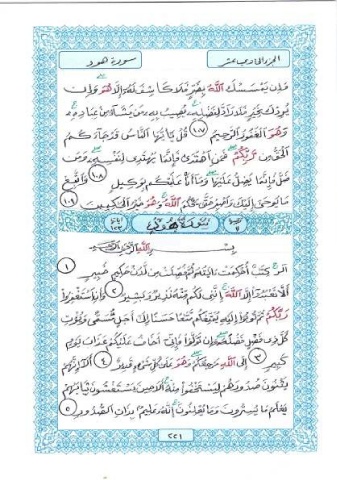 الجزء الحادي عشر سورة هود
وَإِن يَمْسَسْكَ اللَّهُ بِضُرٍّ فَلَا كَاشِفَ لَهُ إِلَّا هُوَ وَإِن
يُرِدْكَ بِخَيْرٍ فَلَا رَادَّ لِفَضْلِهِ يُصِيبُ بِهِ مَن يَشَاءُ مِنْ عِبَادِهِ
وَهُوَ الْغَفُورُ الرَّحِيمُ ١٠٧ قُلْ يَا أَيُّهَا النَّاسُ قَدْ جَاءَكُمُ
الْحَقُّ مِن رَّبِّكُمْ فَمَنِ اهْتَدَى فَإِنَّمَا يَهْتَدِي لِنَفْسِهِ وَمَن
ضَلَّ فَإِنَّمَا يَضِلُّ عَلَيْهَا وَمَا أَنَا عَلَيْكُم بِوَكِيلٍ ١٠٨ وَاتَّبِعْ
مَا يُوحَى إِلَيْكَ وَاصْبِرْ حَتَّى يَحْكُمَ اللَّهُ وَهُوَ خَيْرُ الْحَاكِمِينَ ١٠٩
سورة هود
بِسْمِ اللَّهِ الرَّحْمَنِ الرَّحِيمِ
الر كِتَابٌ أُحْكِمَتْ آيَاتُهُ ثُمَّ فُصِّلَتْ مِن لَّدُنْ حَكِيمٍ خَبِيرٍ ١
أَلَّا تَعْبُدُوا إِلَّا اللَّهَ إِنَّنِي لَكُم مِّنْهُ نَذِيرٌ وَبَشِيرٌ ٢ وَأَنِ اسْتَغْفِرُوا
رَبَّكُمْ ثُمَّ تُوبُوا إِلَيْهِ يُمَتِّعْكُم مَّتَاعًا حَسَنًا إِلَى أَجَلٍ مُّسَمًّى وَيُؤْتِ
كُلَّ ذِي فَضْلٍ فَضْلَهُ وَإِن تَوَلَّوْا فَإِنِّي أَخَافُ عَلَيْكُمْ عَذَابَ يَوْمٍ
كَبِيرٍ ٣ إِلَى اللَّهِ مَرْجِعُكُمْ وَهُوَ عَلَى كُلِّ شَيْءٍ قَدِيرٌ ٤ أَلَا إِنَّهُمْ
يَثْنُونَ صُدُورَهُمْ لِيَسْتَخْفُوا مِنْهُ أَلَا حِينَ يَسْتَغْشُونَ ثِيَابَهُمْ
يَعْلَمُ مَا يُسِرُّونَ وَمَا يُعْلِنُونَ إِنَّهُ عَلِيمٌ بِذَاتِ الصُّدُورِ ٥
٢٢١